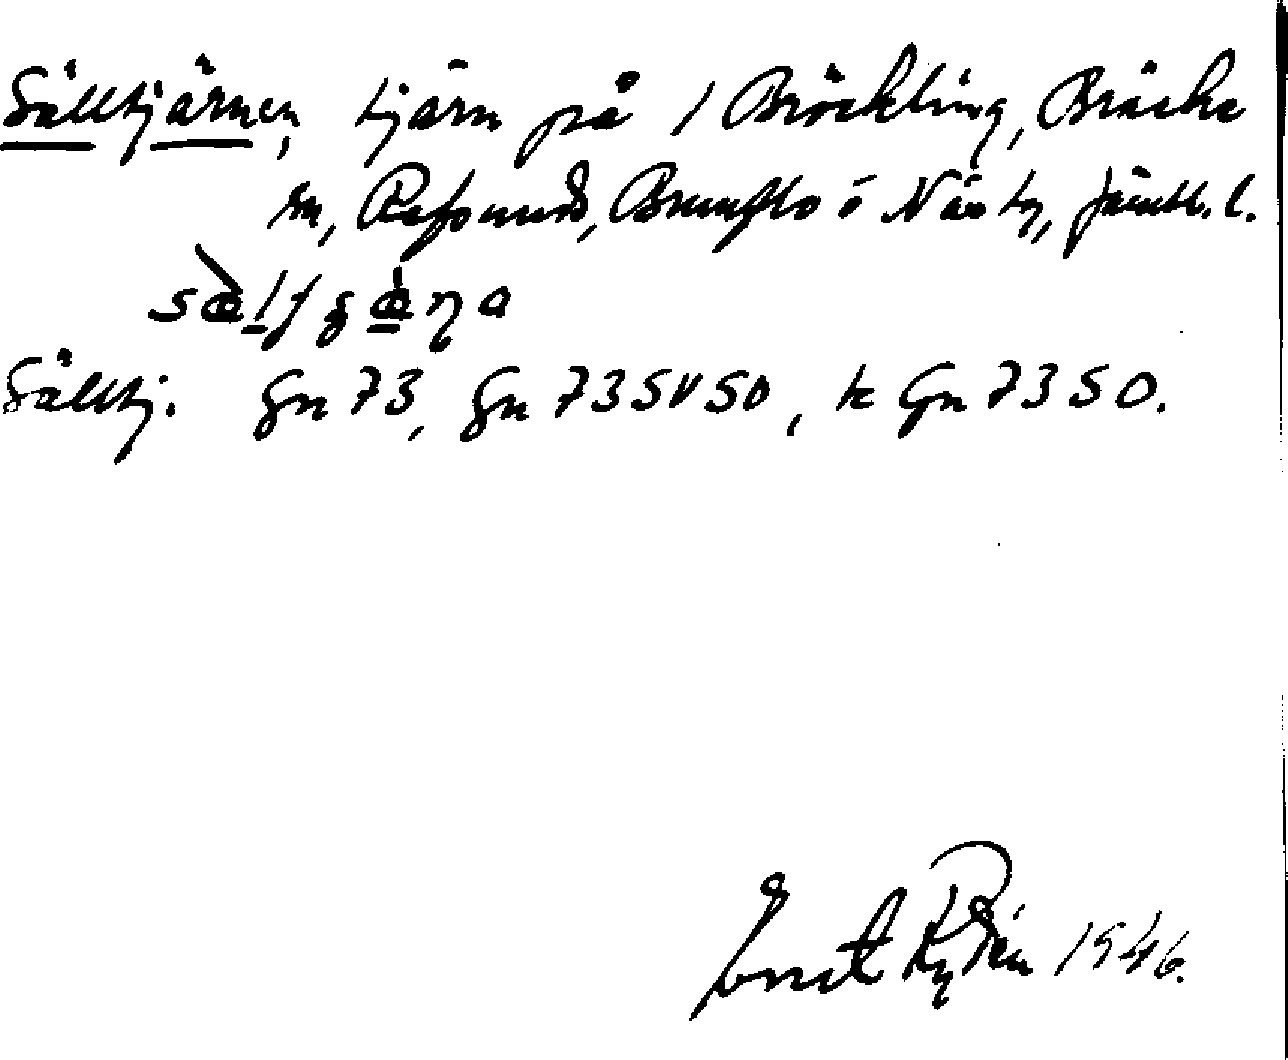 Sälltjärnen, tjärn på 1 Bröckling, Bräcke
sn, Refsunds, Brunflo o Näs tg, Jämtl. l.
Sälltj. Gn 73, Gn 73 SV SO, k Gn 73 SO.
Ernst Rydén 1946.